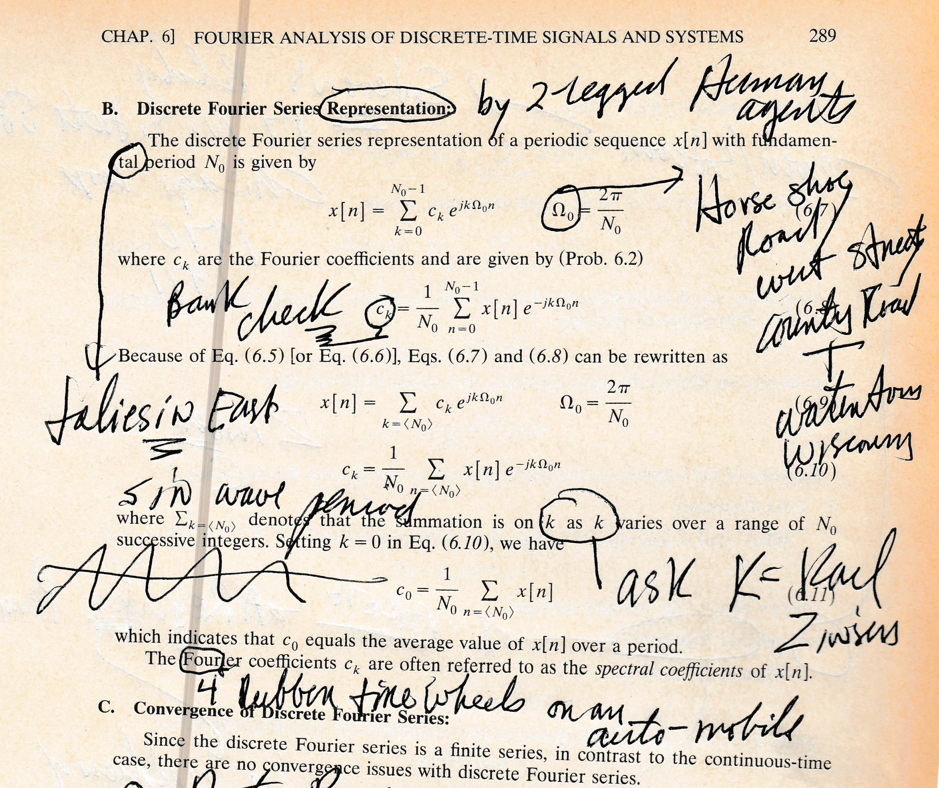 CHAP. 6] FOURIER ANALYSIS OF DISCRETE-TIME SIGNALS AND SYSTEMS 289
by 2-legged Human
agents
B. Discrete Fourier Series Representation:
The discrete Fourier series representation of a periodic sequence x[n] with fundamen-
tal period N₀ is given by
x[n] = ∑_{k=0}^{N₀−1} c_k e^{jkΩ₀n} Ω₀ = 2π/N₀ (6.7)
Horse shoe
Road
where c_k are the Fourier coefficients and are given by (Prob. 6.2)
west street
Bank check
c_k = 1/N₀ ∑_{n=0}^{N₀−1} x[n] e^{−jkΩ₀n} (6.8)
county Road
Because of Eq. (6.5) [or Eq. (6.6)], Eqs. (6.7) and (6.8) can be rewritten as
taliesin East
x[n] = ∑_{k=⟨N₀⟩} c_k e^{jkΩ₀n} Ω₀ = 2π/N₀ (6.9)
watertown
c_k = 1/N₀ ∑_{n=⟨N₀⟩} x[n] e^{−jkΩ₀n} (6.10)
sin wave period
where ∑_{k=⟨N₀⟩} denotes that the summation is on k as k varies over a range of N₀
successive integers. Setting k = 0 in Eq. (6.10), we have
c₀ = 1/N₀ ∑_{n=⟨N₀⟩} x[n] (6.11)
ask K = Karl
which indicates that c₀ equals the average value of x[n] over a period.
The Fourier coefficients c_k are often referred to as the spectral coefficients of x[n].
4 Rubber time wheels on an
auto-mobile
C. Convergence of Discrete Fourier Series:
Since the discrete Fourier series is a finite series, in contrast to the continuous-time
case, there are no convergence issues with discrete Fourier series.